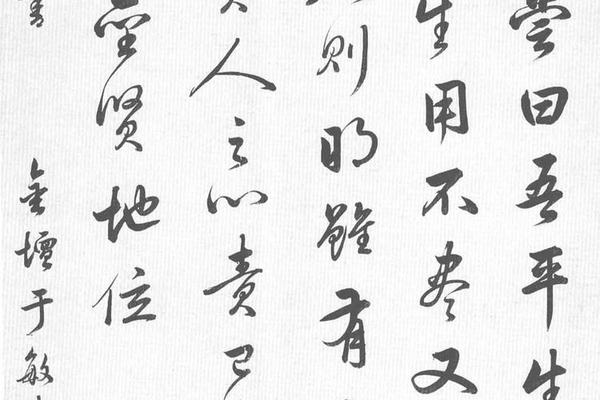 雲曰吾平生
生用不盡又
則明雖有
人之心責己
聖賢地位
書
金壇于敏